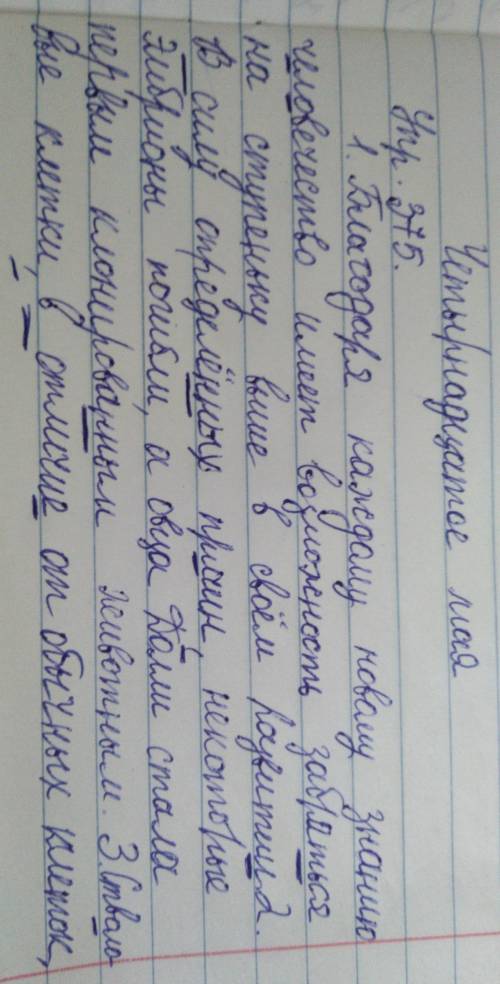 Четырнадцатое мая
Упр. 375.
1. Благодаря каждому новому знанию
человечество имеет возможность забраться
на ступеньку выше в своём развитии. 2.
В силу определённых причин, некоторые
эмбрионы погибли, а овца Долли стала
первым клонированным животным. 3. Стволо-
вые клетки, в отличие от обычных клеток,